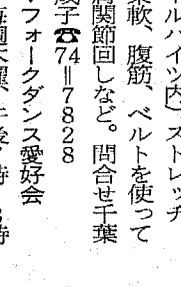 ルハイツ内）ストレッチ
柔軟、腹筋、ベルトを使って
関節回しなど。問合せ千葉
成子☎74＝7828
フォークダンス愛好会